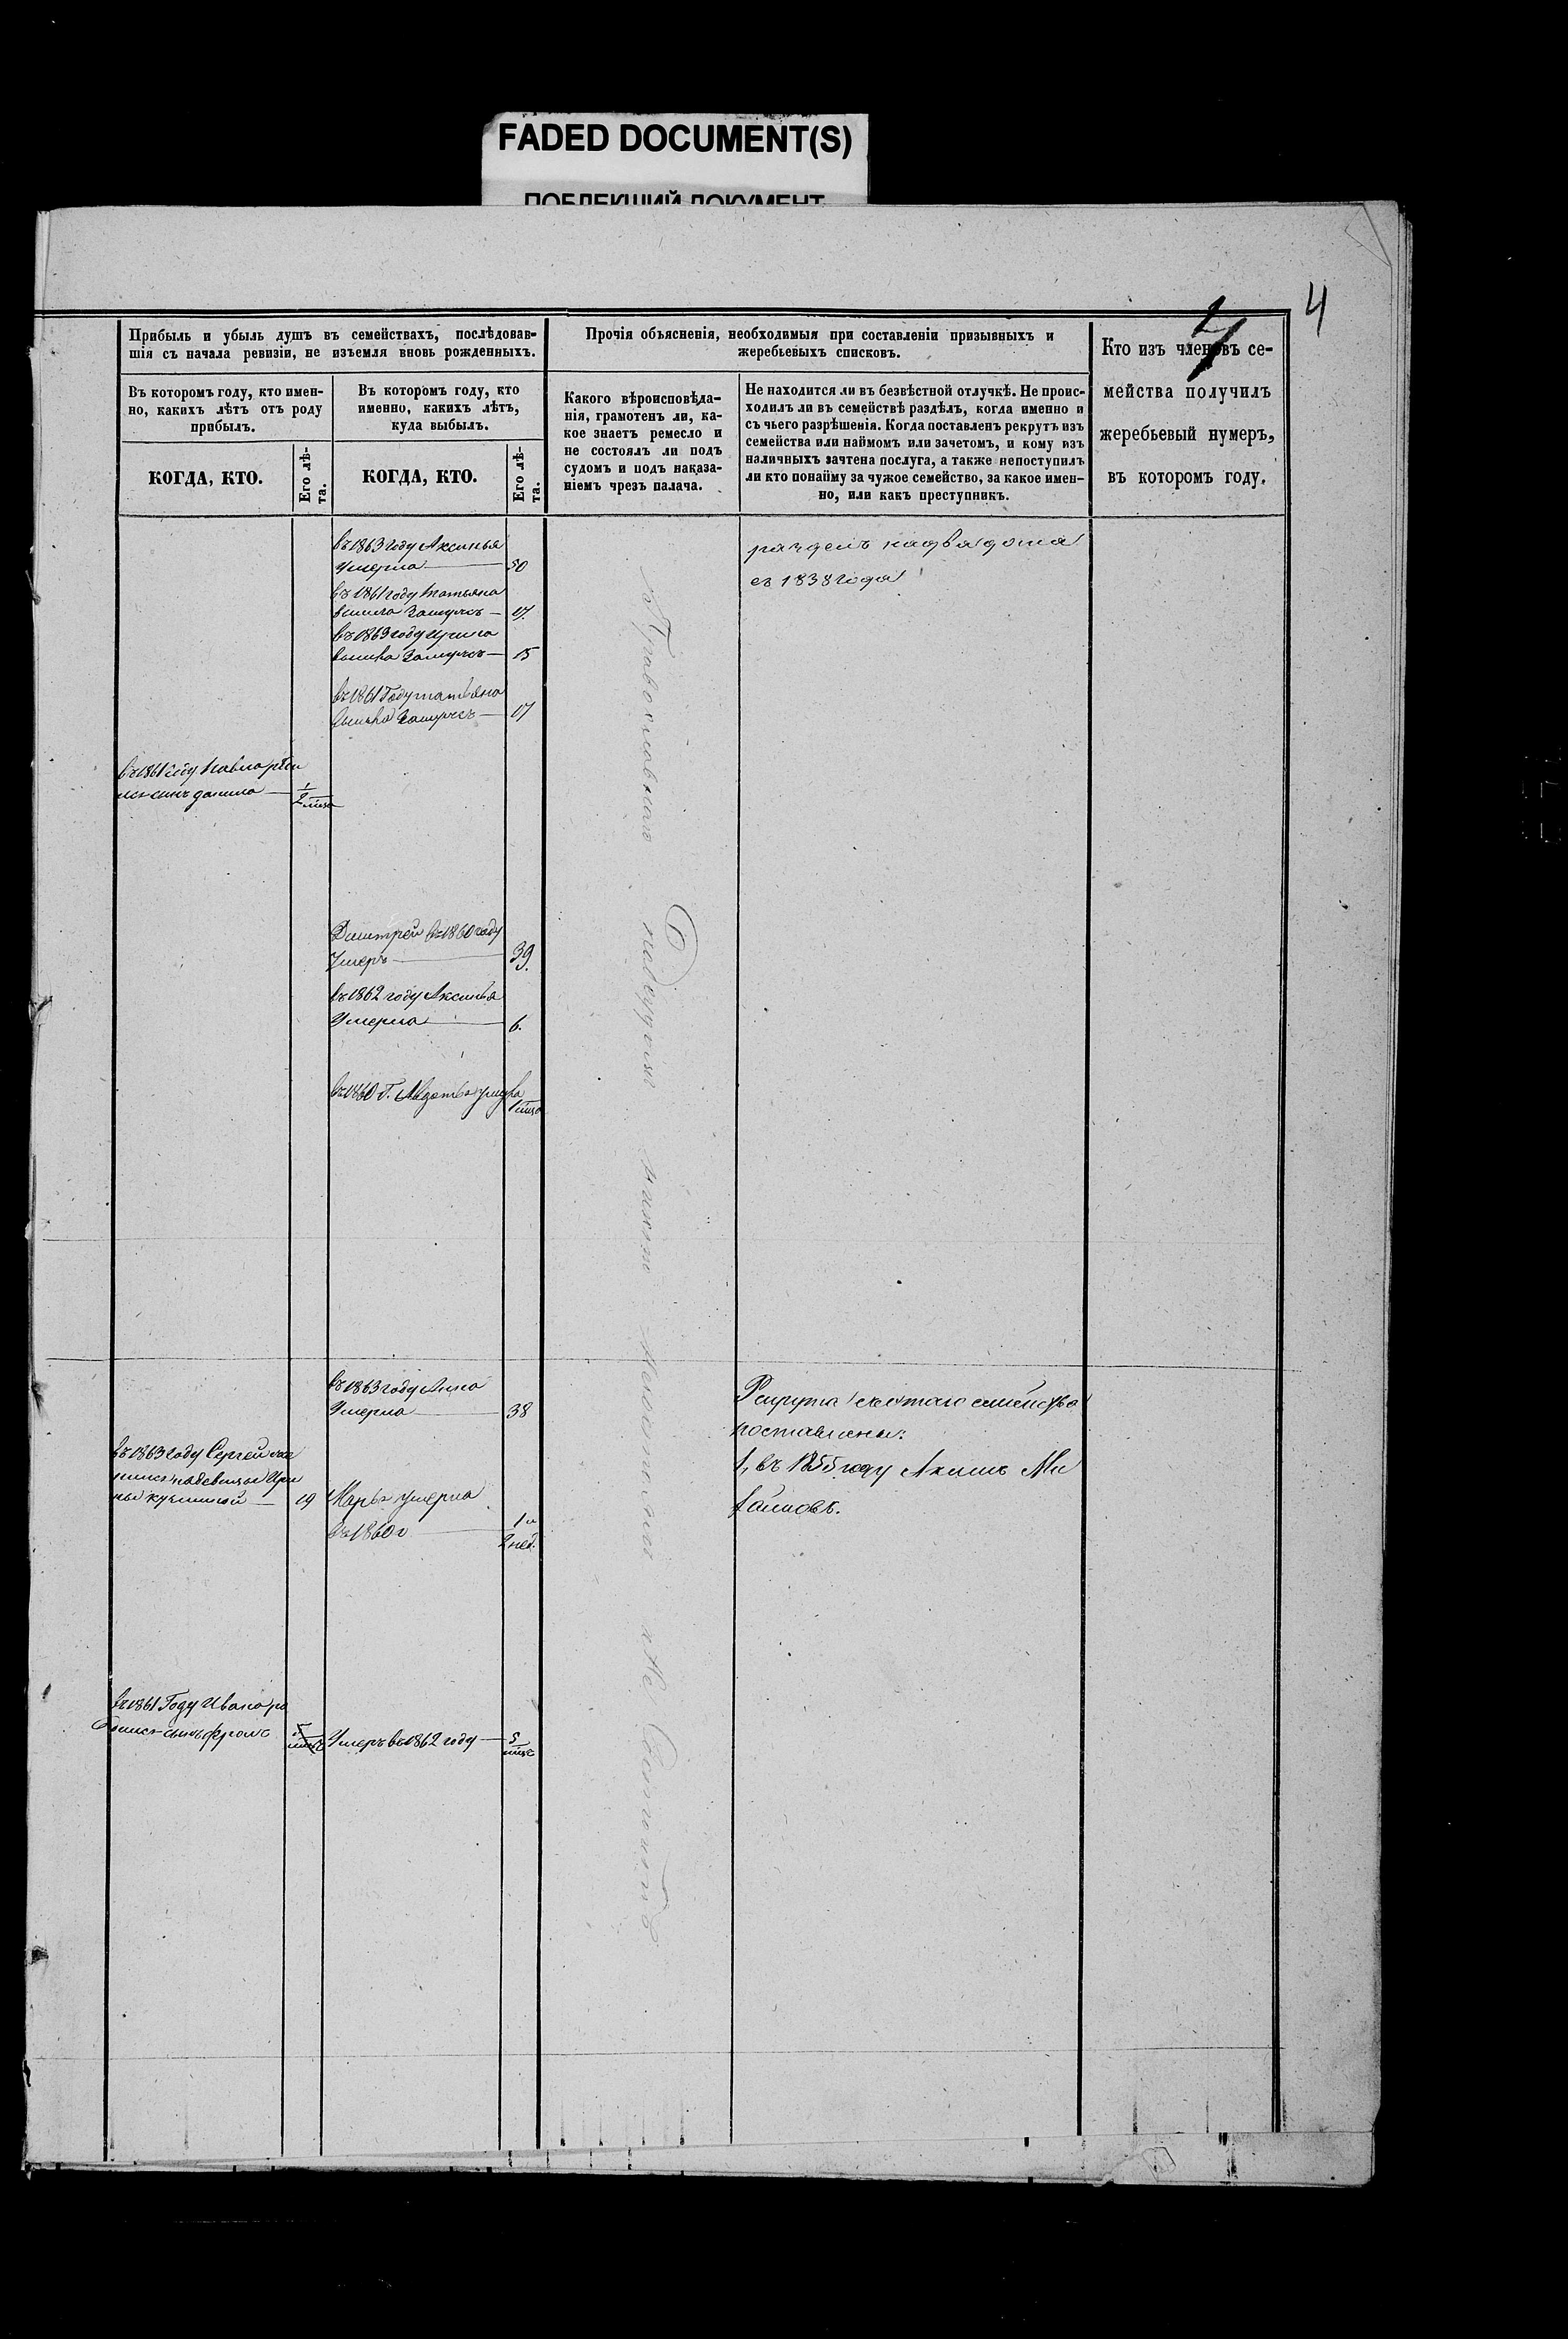 FADED DOCUMENT(S)
ПОБЛЕКШИЙ ДОКУМЕНТ
4
Прибыль и убыль душъ въ семействахъ, послѣдовав-
шія съ начала ревизіи, не изъемля вновь рожденныхъ.
Въ котором году, кто имен-
но, какихъ лѣтъ отъ роду
прибылъ.
КОГДА, КТО.
Его лѣ-
та.
Въ котором году, кто
именно, какихъ лѣтъ,
куда выбылъ.
КОГДА, КТО.
Его лѣ-
та.
Прочія объясненія, необходимыя при составленіи призывныхъ и
жеребьевыхъ списковъ.
Какого вѣроисповѣда-
нія, грамотенъ ли, ка-
кое знаетъ ремесло и
не состоялъ ли подъ
судомъ и подъ наказа-
ніемъ чрезъ палача.
Не находится ли въ безвѣстной отлучкѣ. Не проис-
ходилъ ли въ семействѣ раздѣлъ, когда именно и
съ чьего разрѣшенія. Когда поставленъ рекрутъ изъ
семейства или наймомъ или зачетомъ, и кому изъ
наличныхъ зачтена послуга, а также непоступилъ
ли кто понайму за чужое семейство, за какое имен-
но, или какъ преступникъ.
Кто изъ членовъ се-
мейства получилъ
жеребьевый нумеръ,
въ которомъ году.
въ 1863 году Аксинья
Умерла 50
въ 1861 году Татьяна
вышла Замужъ 17.
въ 1863 году Ирина
вышла Замужъ 15
въ 1861 Году татьяна
вышла Замужъ 17
раздѣлъ на два дома
съ 1838 года
въ 1861 году Павла
сынъ данила 1/2
Дмитрей въ 1860 году
Умеръ 39.
въ 1862 году Аксинья
Умерла 6.
въ 1860 Г. Авдотья умерла
1
Православнаго
подъ
не
въ 1863 году Анна
Умерла 38
въ 1863 году Сергей
на девицы
19
Марья умерла
въ 1860 г 1 и
2 нед.
Рекрута семейства
поставлены:
1, въ 1855 году Акимъ
въ 1861 Году Ивана ро
сынъ 5
Умеръ въ 1862 году 5